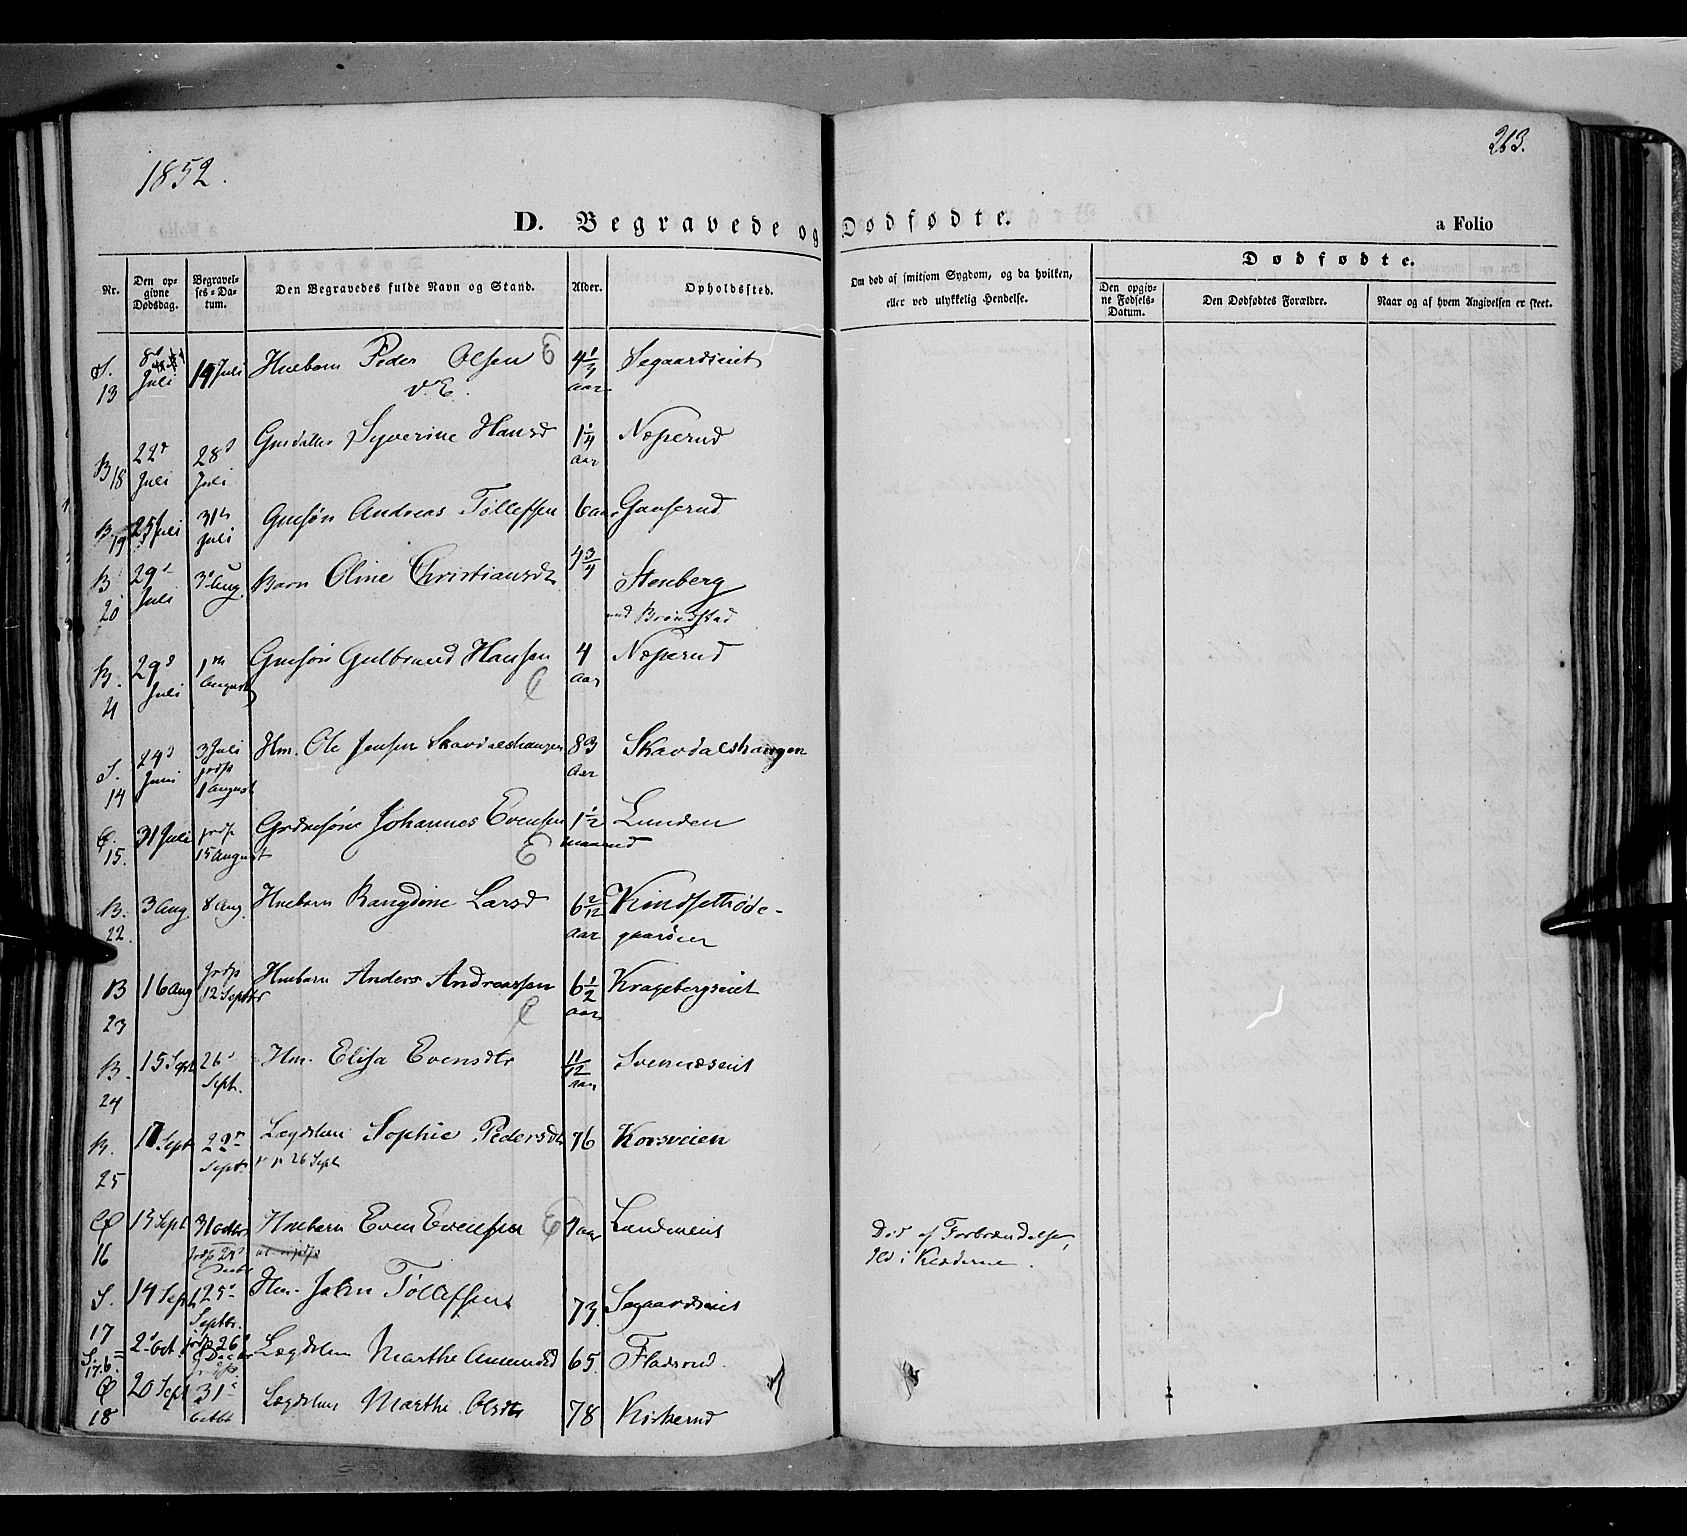 1852.
263.
D. Begravede og Dødfødte.
a Folio
Nr.
Den opgivne Dødsdag.
Begravelses-Datum.
Den Begravedes fulde Navn og Stand.
Alder.
Opholdssted.
Om død af smitsom Sygdom, og da hvilken, eller ved ulykkelig Hendelse.
Dødfødte.
Den opgivne Fødsels-Datum.
Den Dødfødtes Forældre.
Naar og af hvem Angivelsen er skeet.
S. 13 Juli 19 Juli Huebarn Peder Olsen E 4 aar Segaardseiet
V.E.
B 18 22 Juli 28 Juli Syverine Hansd 1 1/4 aar Næperud
B 19 25 Juli 31 Juli Gmsøn Andreas Tøllefsen 6 aar Gaaserud
B. 20 29 Juli 3 Aug. Barn Oline Christiansdt 4 3/4 Stenberg
und Brøndstad
B. 21 29 Juli 1 August Gmsøn Gulbrand Hansen 4 aar Næperud
S. 14 24 Juni 3 Juli jrdp 1 August Hm. Ole Jensen Skavdalshaugen 83 aar Skavdalshaugen
Ø. 15. 31 Juli jrdp 15 August Grdmsøn Johannes Evensen 1 1/2 maaned Lunden
E
B. 22. 3 Aug 8 Aug. Huebarn Rangdine Larsd 6 2/12 aar
B 23 16 Aug jrdp 12 Septbr Huebarn Anders Andreassen 6 1/2 aar Kragebergseiet
B. 24 15 Sept 26 Sept. Hm. Elisa Evensdtr 11/12 aar Svennæseiet
B. 25 17 Sept 22 Septr. Lægdslem Sophie Pedersdt 76 Korsveien
26 Sept
Ø 16 13 Sept 31 Octbr Huebarn Even Evensen E aar Lundeneiet Død af Forbrændelse,
Ild i Klæderne.
S. 17 14 Sept 25 Septbr. Hm. John Tøllefsen 73. Segaardseiet
S. 17.b. 2 Oct. jrdp 26 Lægdslem Marthe Amundsd 65. Fladerud.
Ø 18 20 Sept 31 Octbr Lægdslem Marthe Olsdt 78 Kirkerud